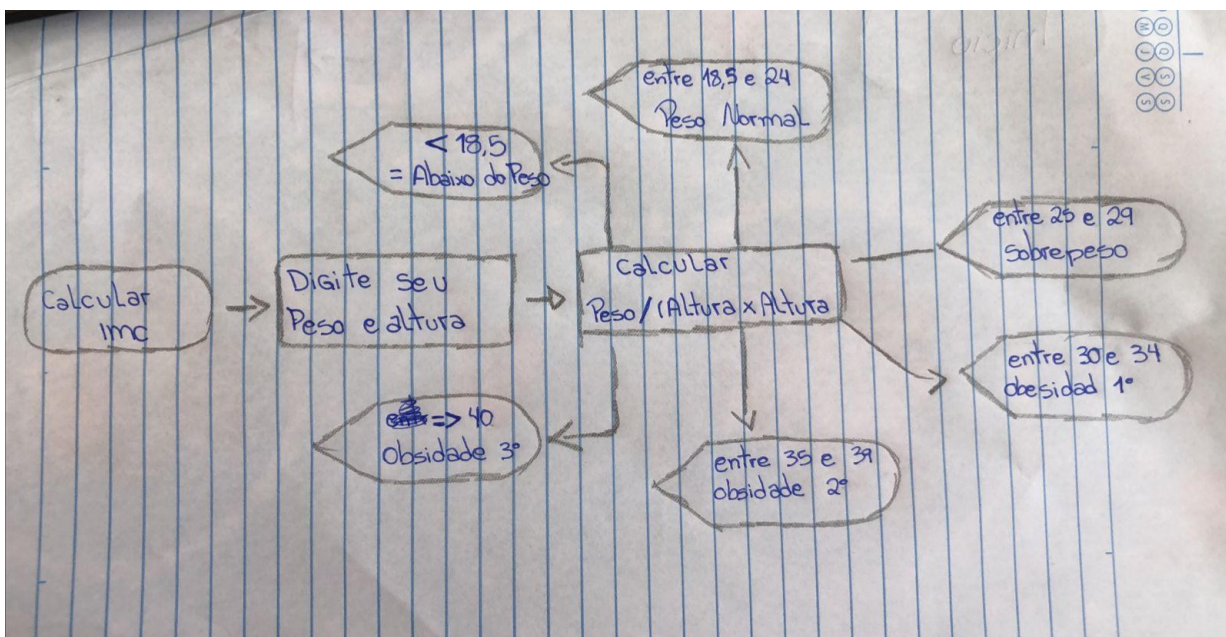 Calcular
imc
Digite seu
Peso e altura
Calcular
Peso/(Altura x Altura
< 18,5
= Abaixo do Peso
entre 18,5 e 24
Peso Normal
entre 25 e 29
Sobrepeso
entre 30 e 34
obesidad 1º
entre 35 e 39
obsidade 2º
=> 40
Obsidade 3º